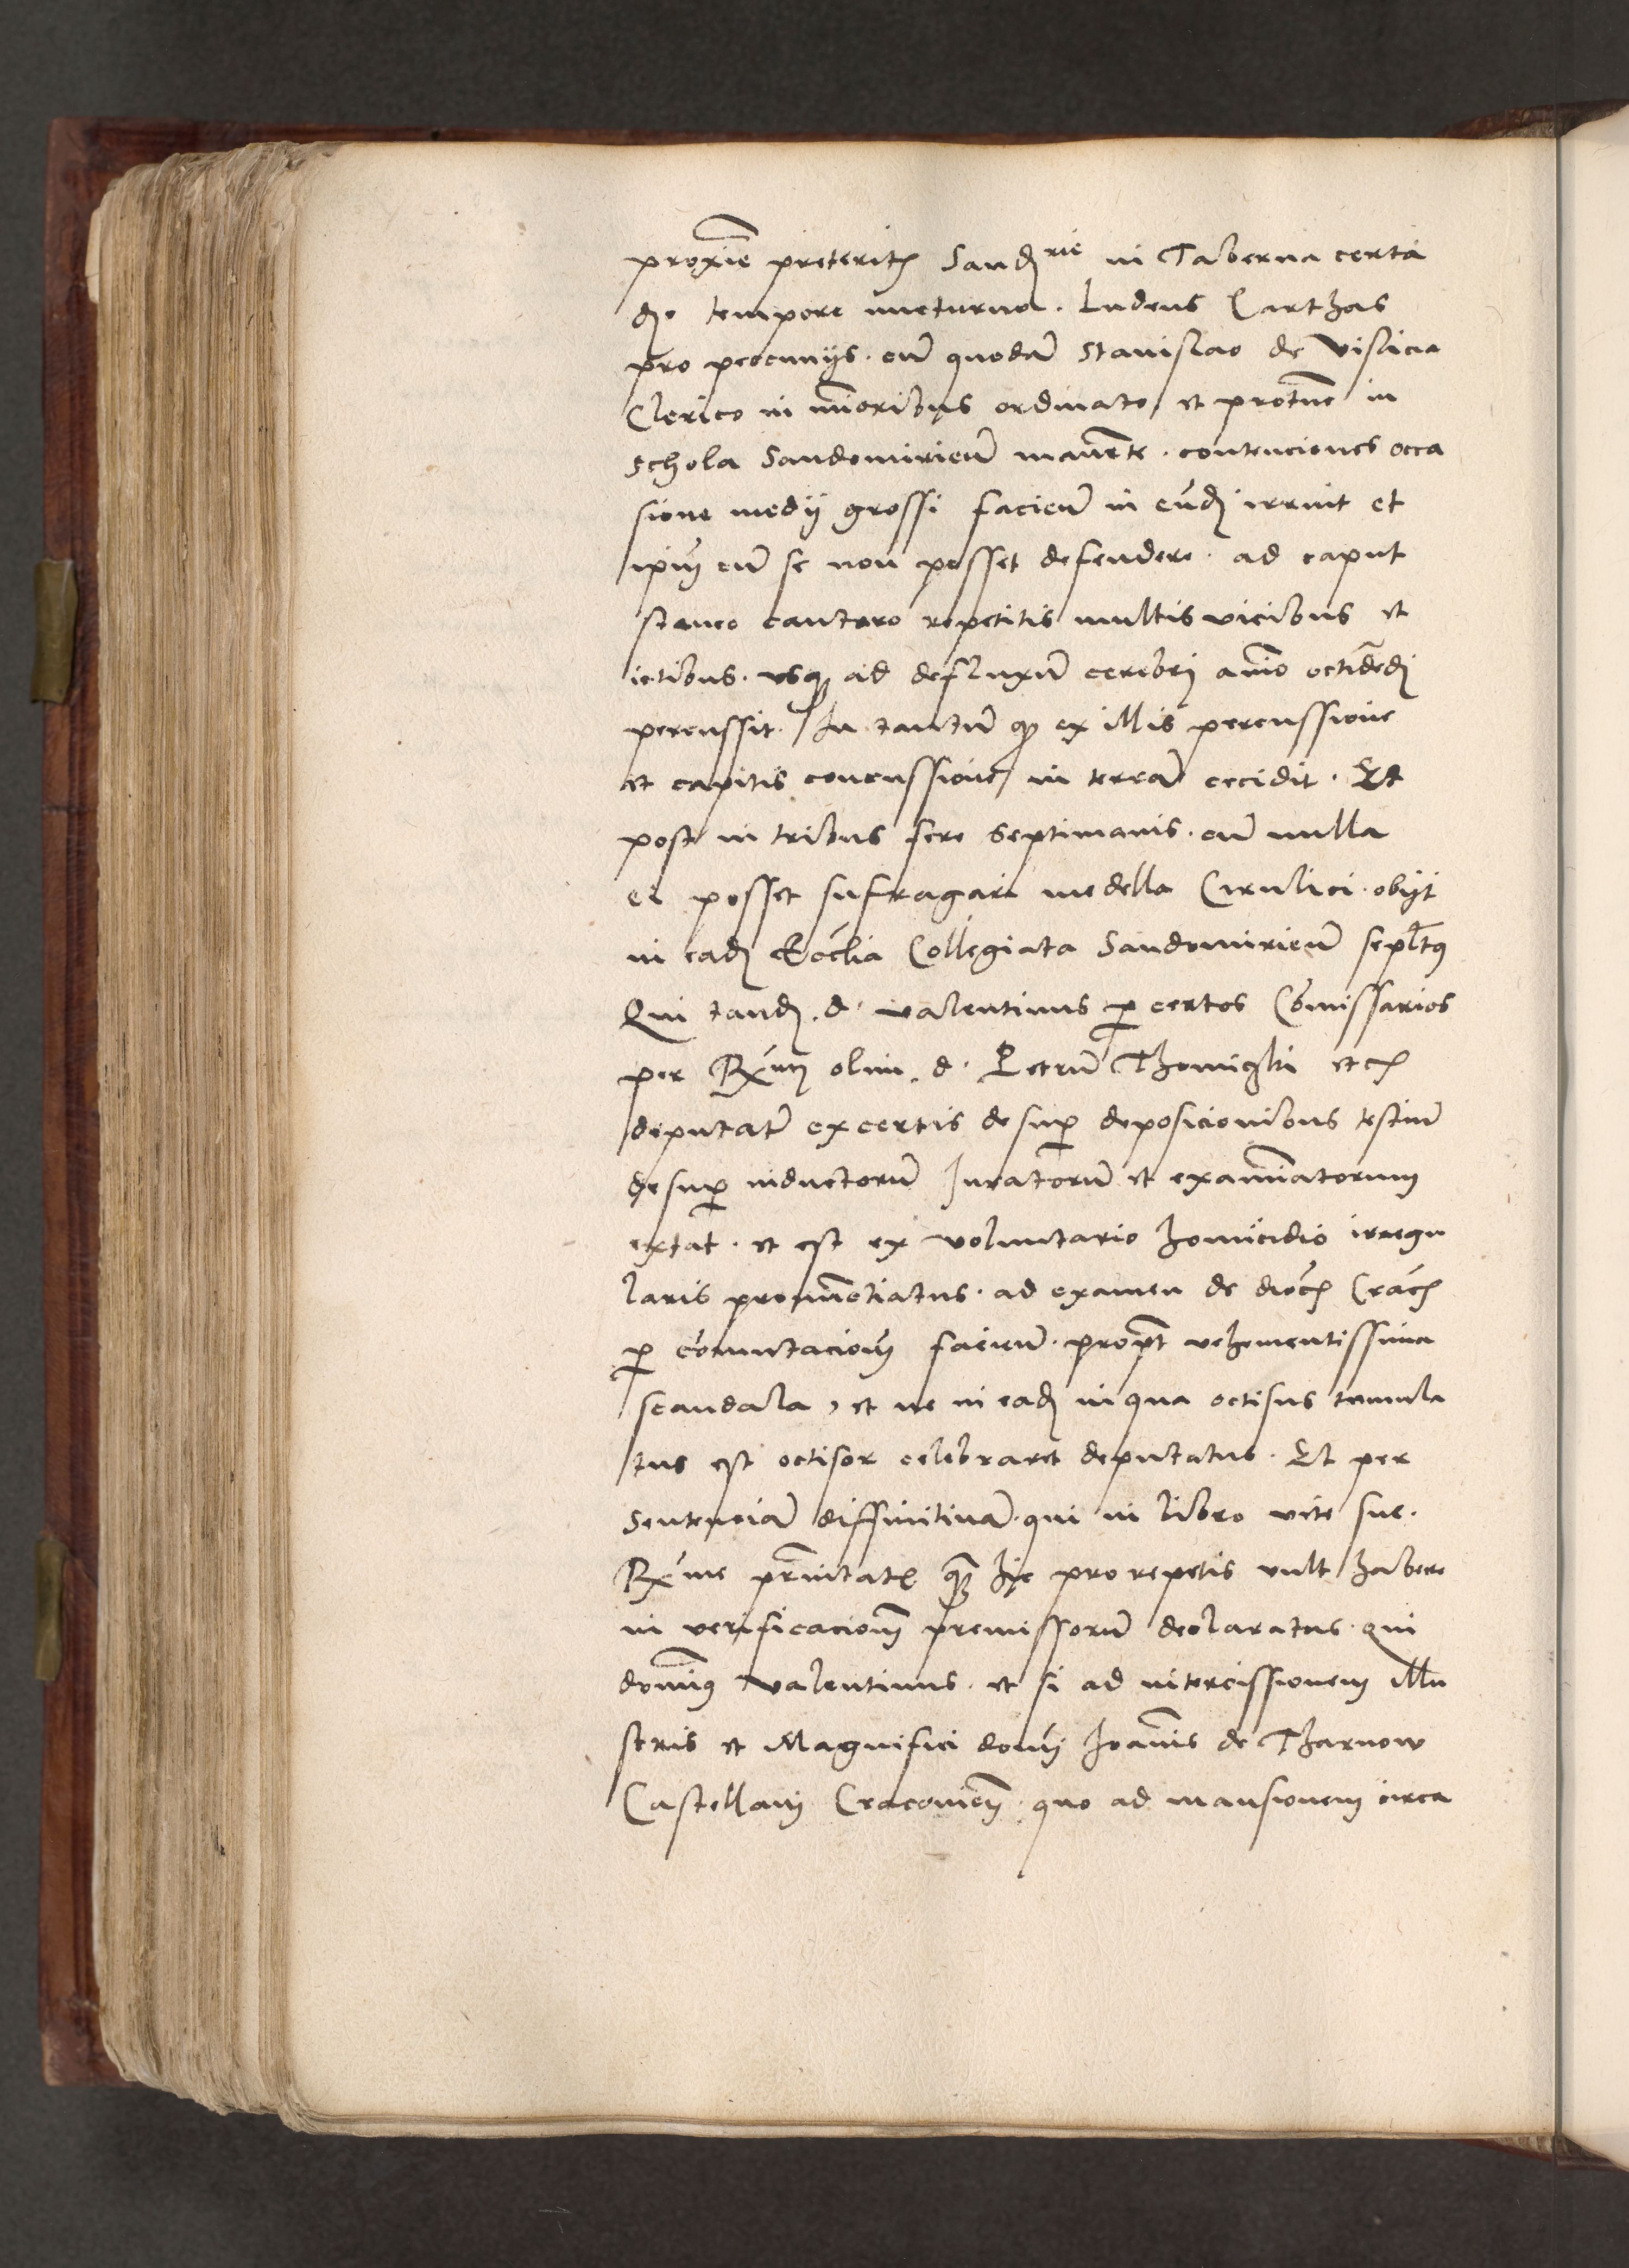 proxīe preterit(is) Sand(omi)rie in Taberna certa
die tempore nocturno. Ludens Carthas
pro peccuniis. cū quodā Stanislao de Vislicia
Clerico in mīoribus ordinato, et protūc in
schola Sandomirien̄ manēte. contenciones occa
sione medii grossi facien̄ in eūd(em) irruit et
ipm̄ cū se non posset defendere. ad caput
staneo cantaro repetitis multis vicibus et
ictibus. usq(ue) ad defluxū cerebri aīo octidēdi
percussit. In tantū q(uod) ex illis percussione
et capitis concussione, in terrā cecidit. Et
post in tribus fere septimanis. cū nulla
ei posset sufragari medella Cirulici. obiit
in ead(em) Eccl̄ia Collegiata Sandomirien̄ sepl̄tus
Qui tand(em). d. valentinus p(er) certos Comissarios
per Rx̄m olim. d. Petrū Thomiczki etc
deputat̄ ex certis desup(er) deposicionibus testiū
desup(er) inductorū Iuratorū et examīatorum
extat. et est ex voluntario homicidio irregu
laris pronūctiatus. ad examen de dioc̄ Crac̄
p(er) cōmutaciom̄ facien̄. propt̄ vehementissima
scandala, et ne in ead(em) in qua octisus tumula
tus est octisor celebraret deputatus. Et per
Sentenciā diffinitiuā. qui in libro vite sue.
Rx̄me pr̄nitat(is) quē hic pro repetis vult habere
in verificaciom̄ premissorū declaratus. qui
domīus Valentinus. et si ad intercissionem Illu
stris et Magnifici domī Ioānis de Tharnow
Castellani Cracouieñ. quo ad mansionem circa